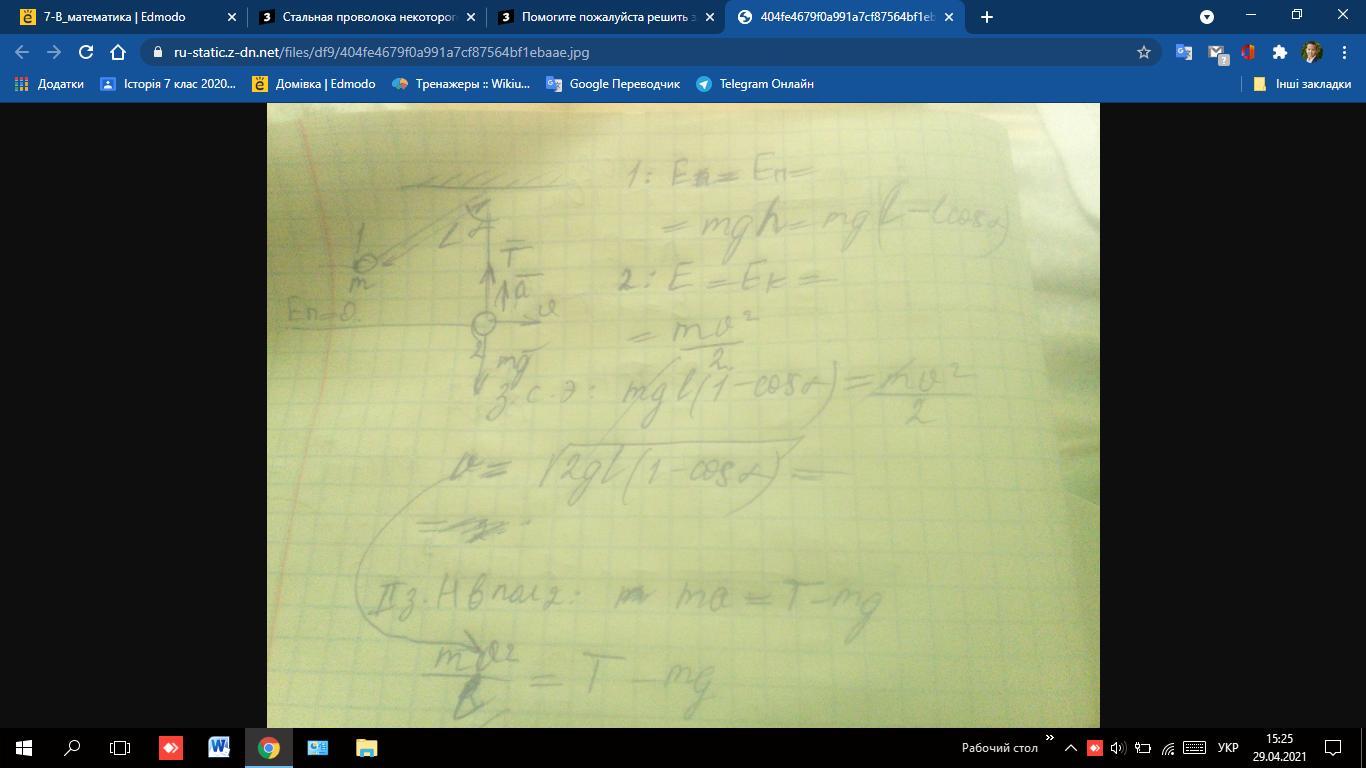 7-В_математика | Edmodo
Стальная проволока некоторог
Помогите пожалуйста решить з
404fe4679f0a991a7cf87564bf1eb
ru-static.z-dn.net/files/df9/404fe4679f0a991a7cf87564bf1ebaae.jpg
Додатки
Історія 7 клас 2020...
Домівка | Edmodo
Тренажеры :: Wikiu...
Google Переводчик
Telegram Онлайн
Інші закладки
1: E = Eп =
= mgh = mg(l - l cosα)
1
L
α
T
m
a
2: E = Eк =
Eп=0
v
= mv²/2
2
mg
З.С.Э: mgl(1-cosα) = mv²/2
v = √2gl(1-cosα) =
=
II з. Н в пол 2: ma = T - mg
mv²/l = T - mg
Рабочий стол
УКР
15:25
29.04.2021